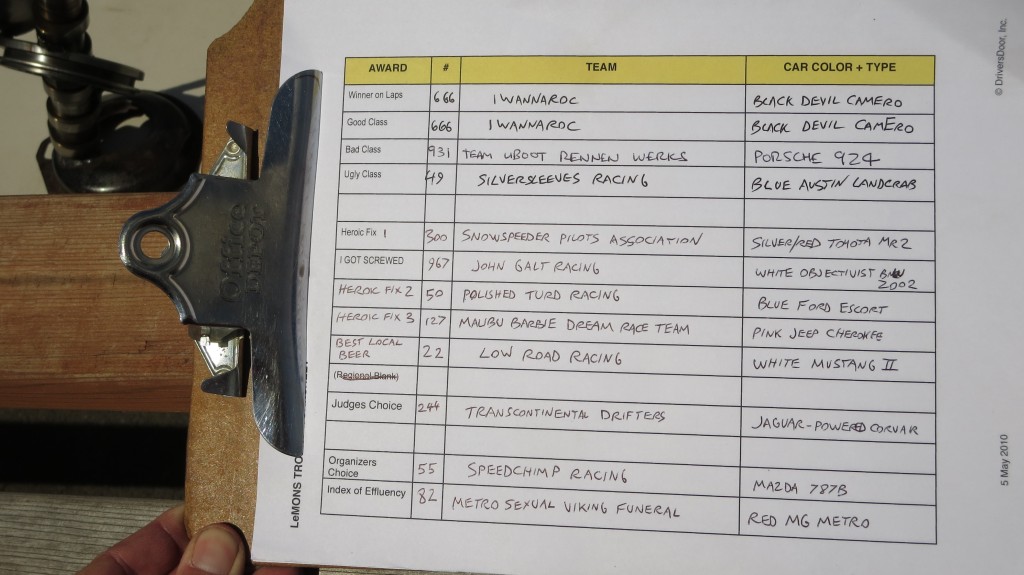 AWARD # TEAM CAR COLOR + TYPE
Winner on Laps 666 I WANNAROC BLACK DEVIL CAMERO
Good Class 666 I WANNAROC BLACK DEVIL CAMERO
Bad Class 931 TEAM UBOOT RENNEN WERKS PORSCHE 924
Ugly Class 49 SILVERSLEEVES RACING BLUE AUSTIN LANDCRAB
Heroic Fix 1 300 SNOWSPEEDER PILOTS ASSOCIATION SILVER/RED TOYOTA MR2
I GOT SCREWED 967 JOHN GALT RACING WHITE OBJECTIVIST BMW
2002
HEROIC FIX 2 50 POLISHED TURD RACING BLUE FORD ESCORT
HEROIC FIX 3 127 MALIBU BARBIE DREAM RACE TEAM PINK JEEP CHEROKEE
BEST LOCAL
BEER 22 LOW ROAD RACING WHITE MUSTANG II
(Regional Blank)
Judges Choice 244 TRANSCONTINENTAL DRIFTERS JAGUAR-POWERED CORVAIR
Organizers
Choice 55 SPEEDCHIMP RACING MAZDA 787B
Index of Effluency 82 METRO SEXUAL VIKING FUNERAL RED MG METRO
© DriversDoor, Inc.
5 May 2010
LeMONS TRO
Office